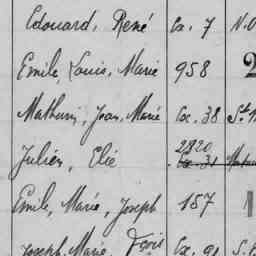 Edouard, René Ex. 7 N.O
Emile, Louis, Marie 958 2
Mathurin, Jean, Marie Ex. 38 St.
2820
Julien, Elie Ex. 31
Emile, Marie, Joseph 157 1
Joseph, Marie, Fçois Ex. 91 S.